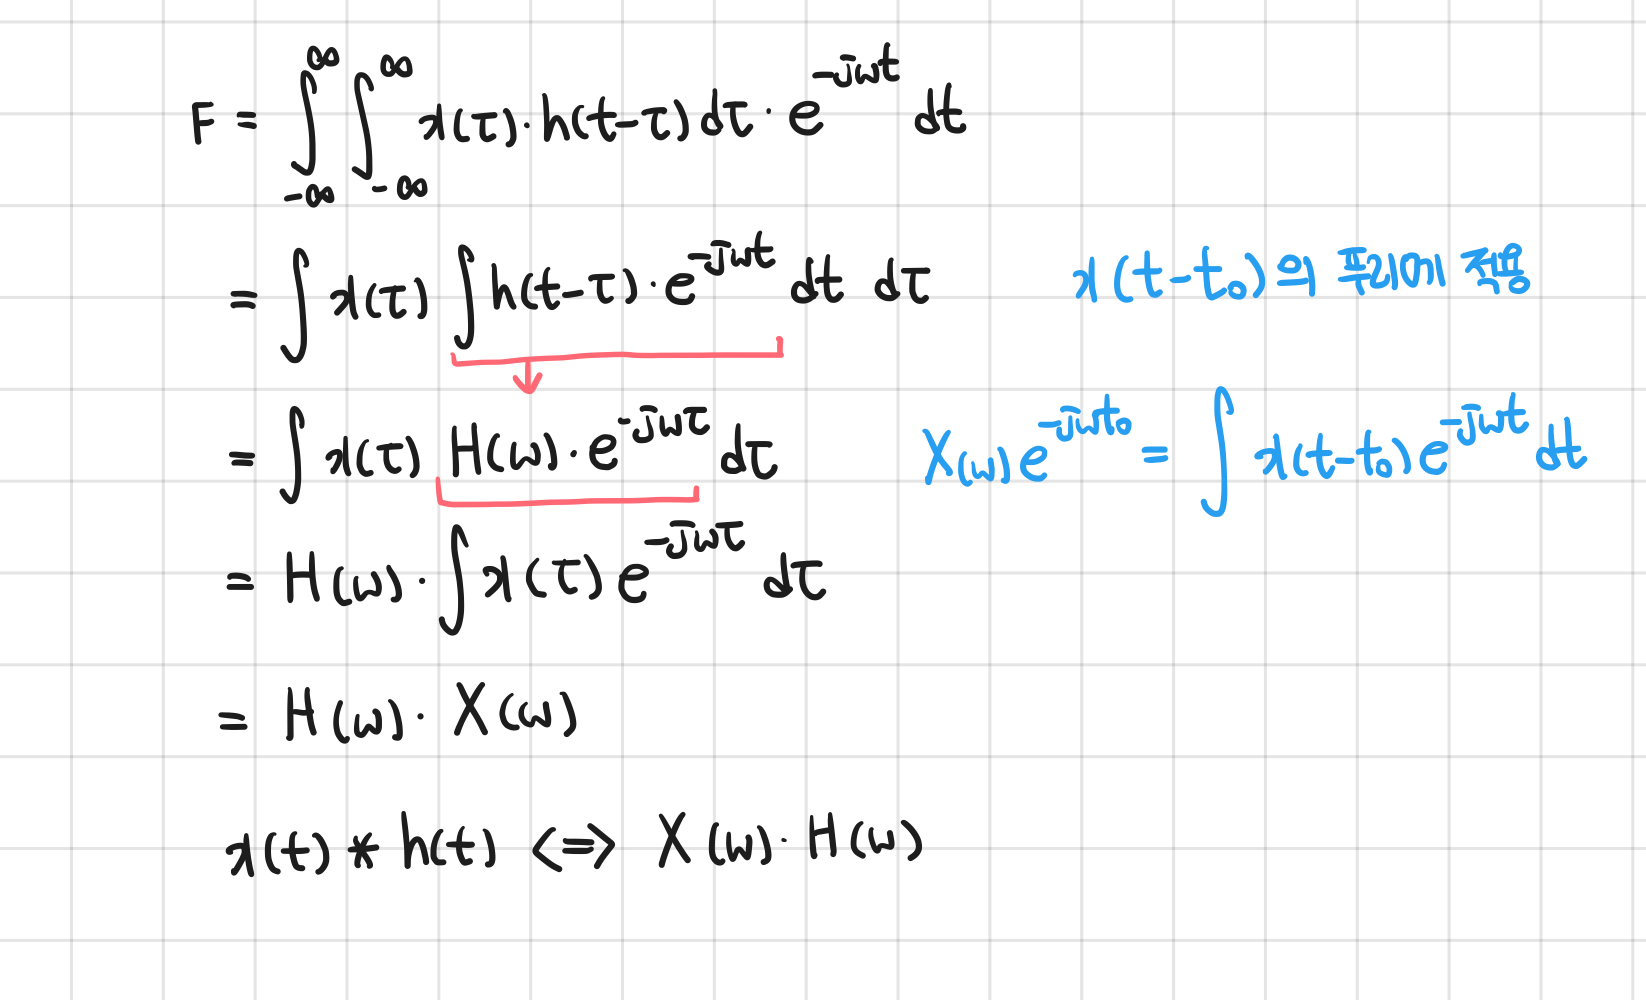 F = ∫_{-∞}^{∞} ∫_{-∞}^{∞} x(τ)·h(t-τ)dτ · e^{-jωt} dt
= ∫ x(τ) ∫ h(t-τ)·e^{-jωt} dt dτ
x(t-t₀)의 푸리에 적용
= ∫ x(τ) H(ω)·e^{-jωτ} dτ
X(ω)e^{-jωt₀} = ∫ x(t-t₀)e^{-jωt} dt
= H(ω)·∫ x(τ)e^{-jωτ} dτ
= H(ω)·X(ω)
x(t) * h(t) <=> X(ω)·H(ω)